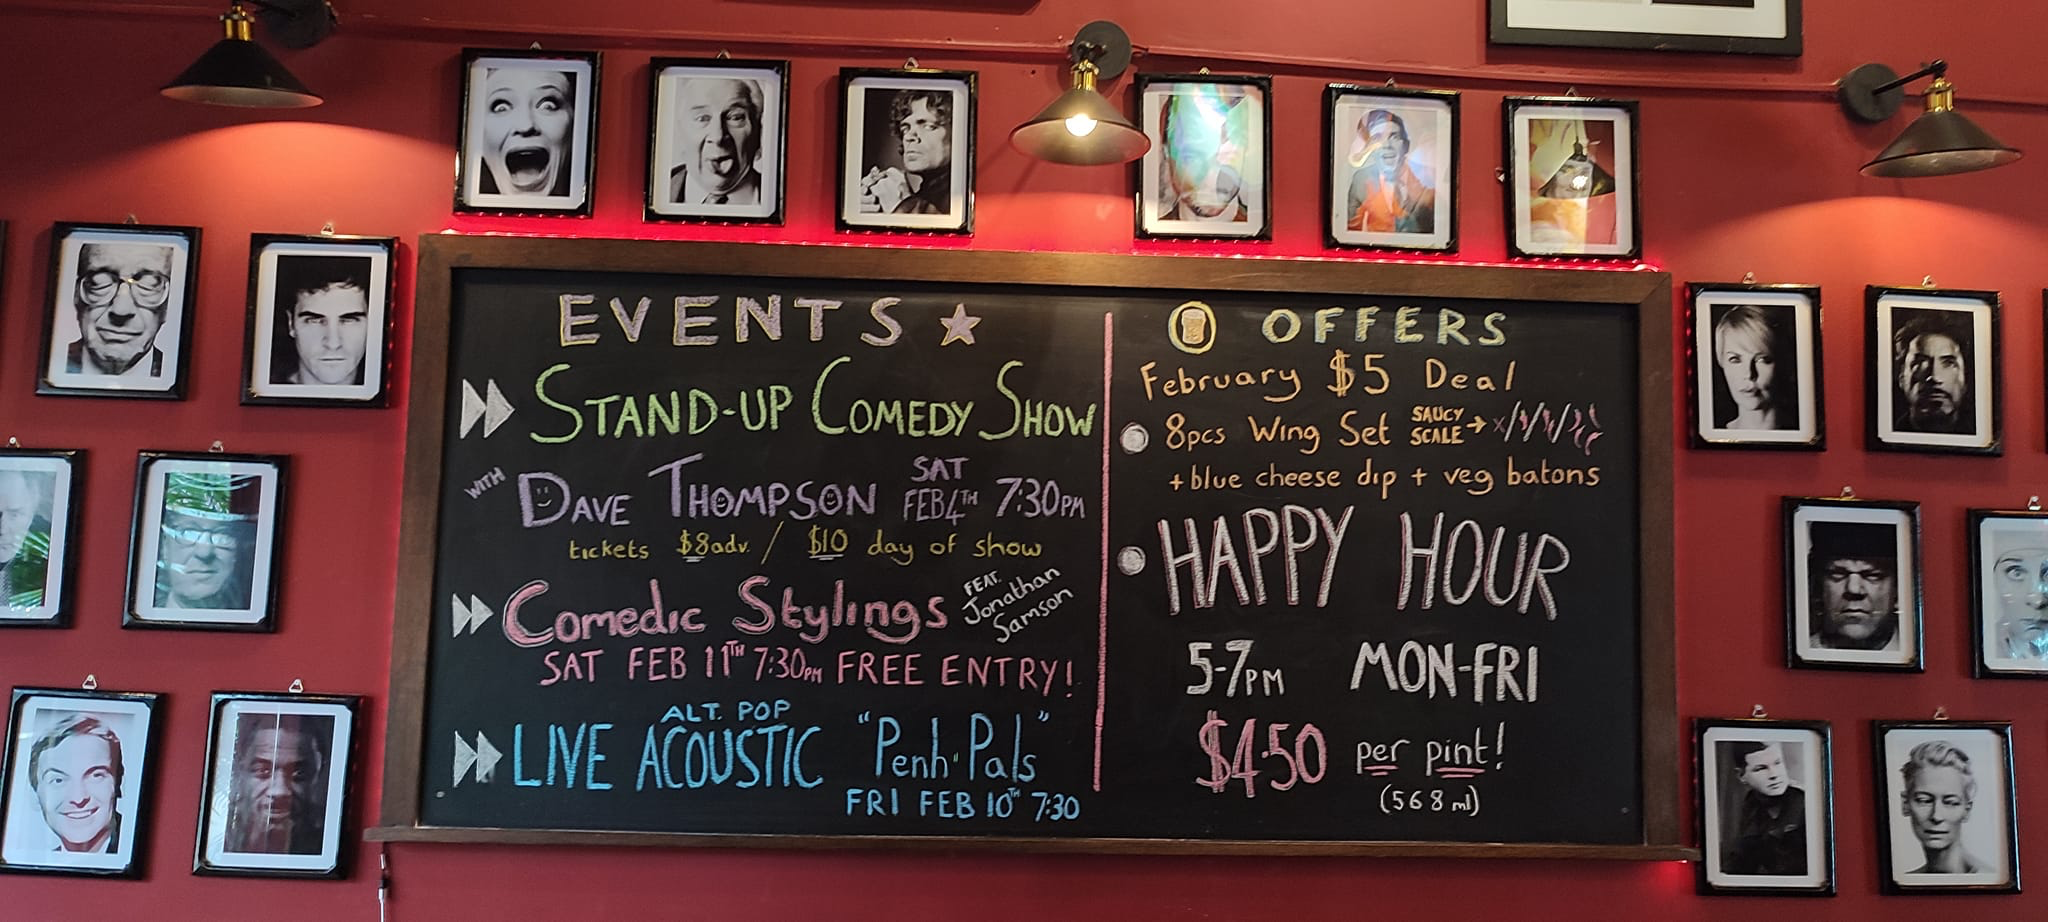 EVENTS
STAND-UP COMEDY SHOW
WITH DAVE THOMPSON SAT FEB 4TH 7:30PM
tickets $8adv. / $10 day of show
Comedic Stylings FEAT. Jonathan Samson
SAT FEB 11TH 7:30PM FREE ENTRY!
ALT. POP
LIVE ACOUSTIC "Penh·Pals"
FRI FEB 10TH 7:30
OFFERS
February $5 Deal
8pcs Wing Set SAUCY SCALE
+ blue cheese dip + veg batons
HAPPY HOUR
5-7PM MON-FRI
$4.50 per pint!
(568 ml)